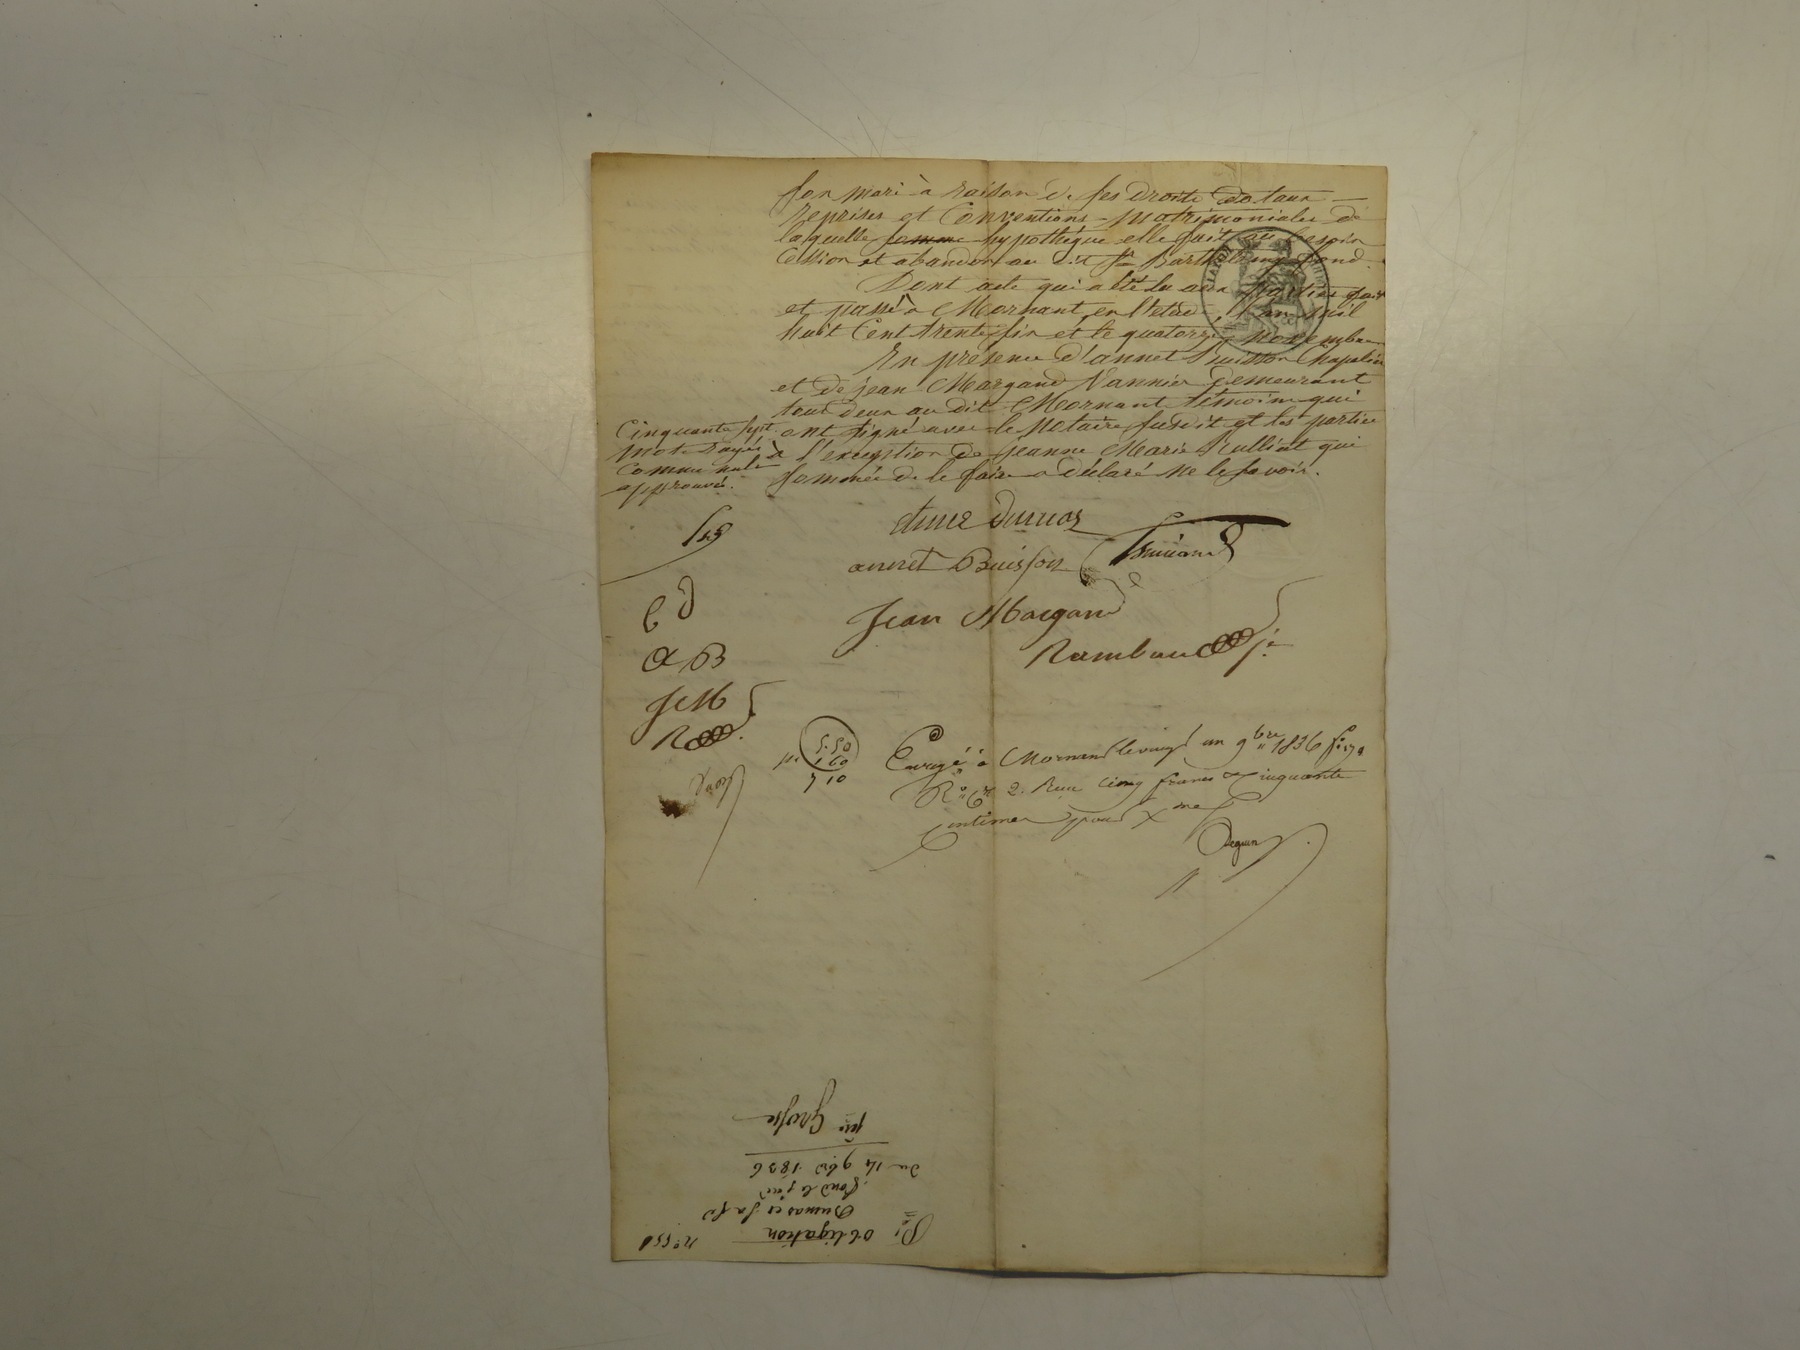 son mari à raison de ses droits dotaux
reprises et Conventions matrimoniales de
laquelle somme hypothèque elle fait au besoin
Cession et abandon au dit Sr Barthélemy fond.
Dont acte qui a été lu aux parties fait
et passé à Mornant en l'étude l'an mil
huit Cent trente six et le quatorze novembre
En présence d'annet Buisson Chapelier
et de jean Margand Vannier demeurant
tous deux au dit Mornant témoins qui
ont signé avec le Notaire susdit et les parties
à l'exception de Jeanne Marie Rulliat qui
sommée de le faire a déclaré ne le savoir.
Cinquante sept
mots rayés
comme nuls
approuvés.
annet Buisson
Jean Margand
E D
A B
J M
5.50
Enregé à Mornant le vingt un 9bre 1836 fo
Reçu cinq francs cinquante
centimes pour
n° 551
Obligation
Dumas et sa fe
fond
du 14 9bre 1836
Grosse